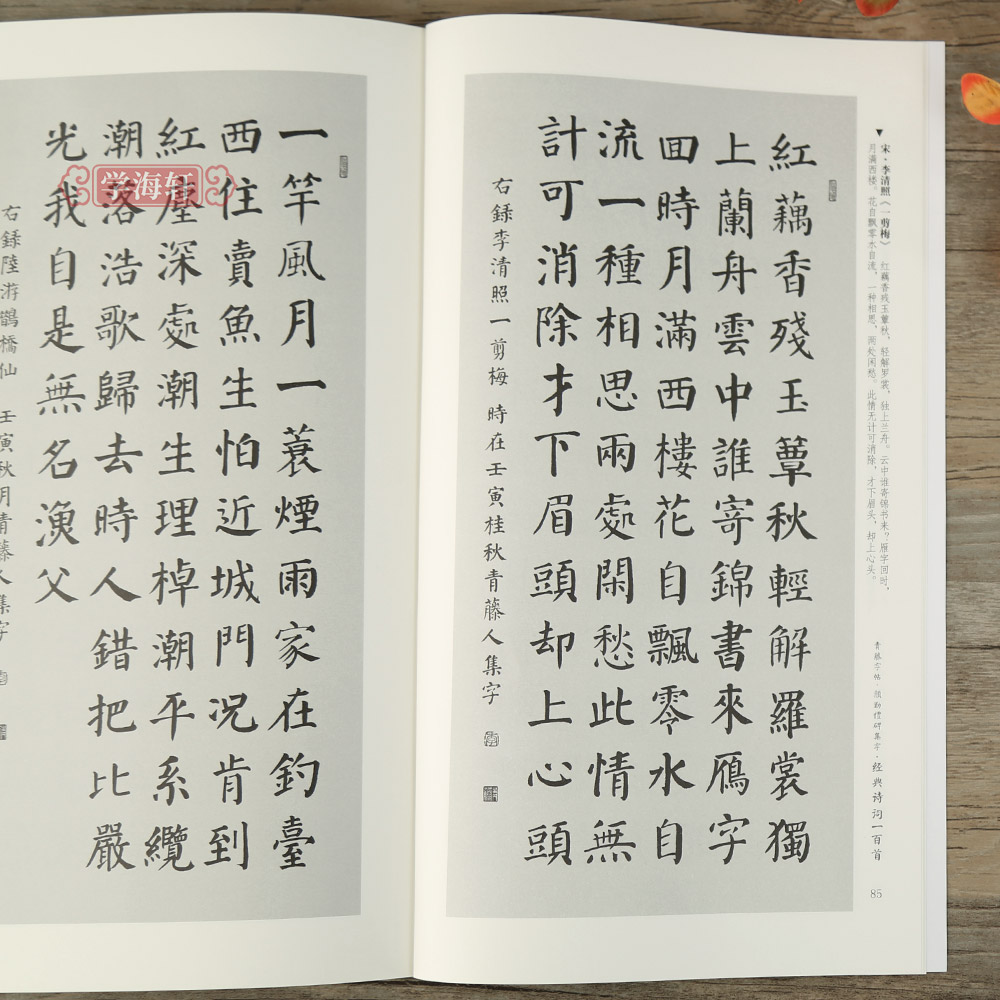 ▼宋·李清照《一剪梅》 红藕香残玉簟秋，轻解罗裳，独上兰舟。云中谁寄锦书来？雁字回时，
月满西楼。花自飘零水自流，一种相思，两处闲愁。此情无计可消除，才下眉头，却上心头。
紅藕香殘玉蕈秋輕解羅裳獨
上蘭舟雲中誰寄錦書來鴈字
回時月滿西樓花自飄零水自
流一種相思兩處閑愁此情無
計可消除才下眉頭却上心頭
右錄李清照一剪梅 時在壬寅桂秋青藤人集字
青藤字帖·颜勤禮碑集字·经典诗词一百首
85
一竿風月一蓑煙雨家在釣臺
西住賣魚生怕近城門况肯到
紅塵深處潮生理棹潮平系纜
潮落浩歌歸去時人錯把比嚴
光我自是無名漁父
右錄陸游鵲橋仙 壬寅秋月青藤人集字
学海轩